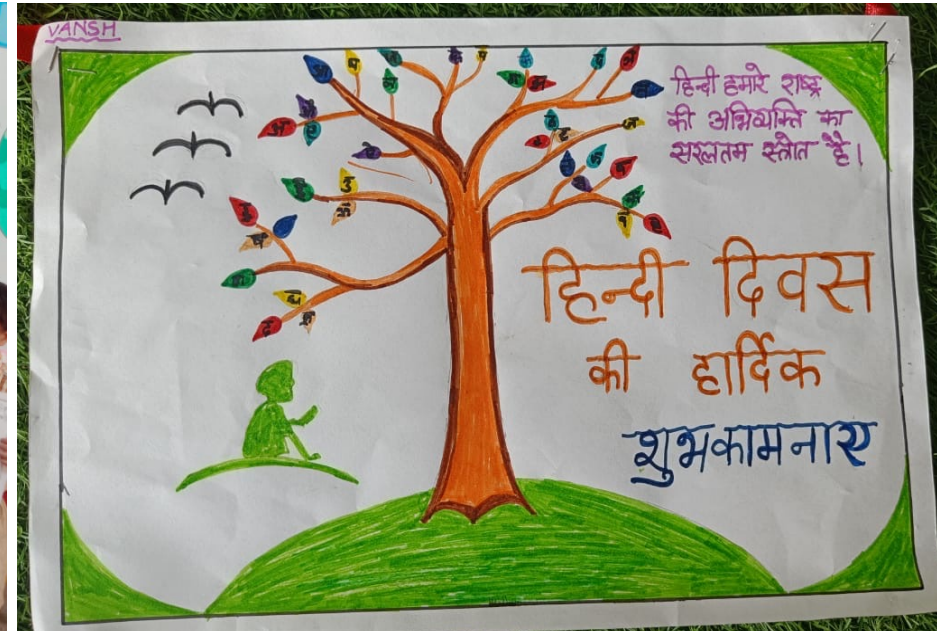 VANSH
हिन्दी हमारे राष्ट्र
की अभिव्यक्ति का
सरलतम स्त्रोत है।
हिन्दी दिवस
की हार्दिक
शुभकामनाए